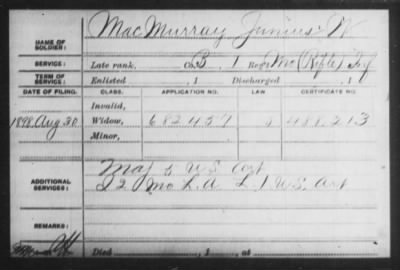 NAME OF SOLDIER: MacMurray Junius W
SERVICE: Late rank, Co. B, 1 Reg't Mo (Rifle) Inf
TERM OF SERVICE: Enlisted , 1 Discharged , 1
DATE OF FILING. CLASS. APPLICATION NO. LAW. CERTIFICATE NO.
Invalid,
1898 Aug 30 Widow, 682457 488.213
Minor,
ADDITIONAL SERVICES: Maj 5 U.S. Art
I 2 Mo L.A L 1 U.S. Art
REMARKS:
Died , 1 , at